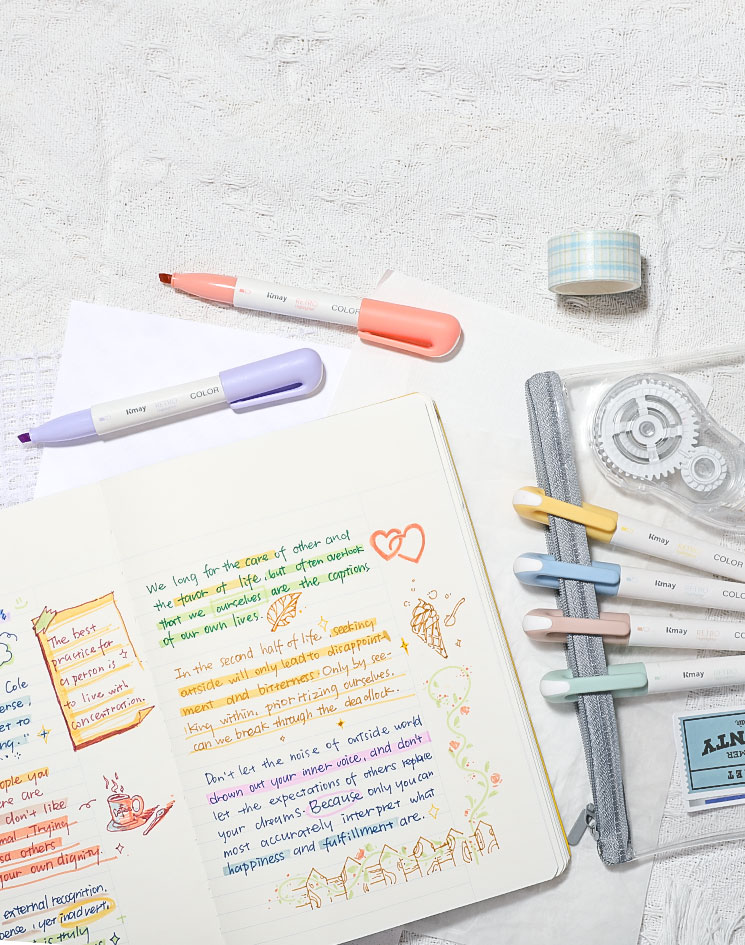 Kmay RETRO COLOR
Kmay RETRO COLOR
Kmay
Kmay
Kmay RETRO
Kmay
NTY
MER
ET
We long for the care of other and
the favor of life, but often overlook
that we ourselves are the captions
of our own lives.
In the second half of life, seeking
outside will only lead to disappoint
ment and bitterness. Only by see-
king within, prioritizing ourselves.
can we break through the deadlock.
Don't let the noise of outside world
drown out your inner voice, and don't
let the expectations of others replace
your dreams. Because only you can
most accurately interpret what
happiness and fulfillment are.
The best
practice for
a person is
to live with
concentration.
Cole
erse,
et to
ng."
ople you
ere are
don't like
mal. Trying
others
your own dignity.
external recognition.
ense, yet inadvert
is truly